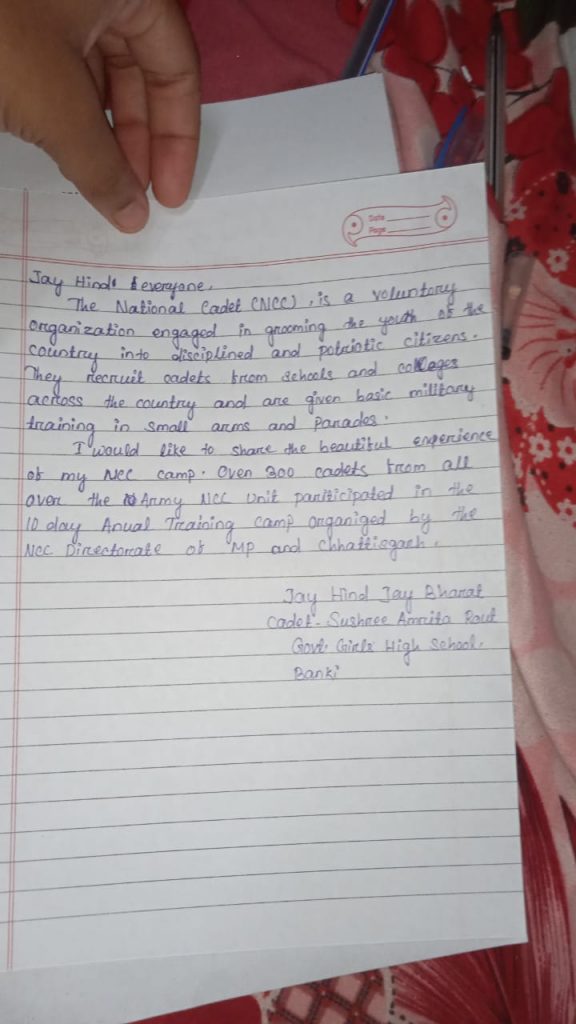 Date
Page
Jay Hind everyone,
The National Cadet (NCC), is a voluntory
organization engaged in grooming the youth of the
country into disciplined and patriotic citizens.
They recruit cadets from schools and colleges
across the country and are given basic military
training in small arms and Parades.
I would like to share the beautiful experience
of my NCC camp. Over 300 cadets from all
over the Army NCC Unit pariticipated in the
10 day Anual Training camp organiged by the
NCC Directorate of MP and Chhattisgarh.
Jay Hind Jay Bharat
Cadet- Sushree Amrita Rout
Govt. Girls High School.
Banki